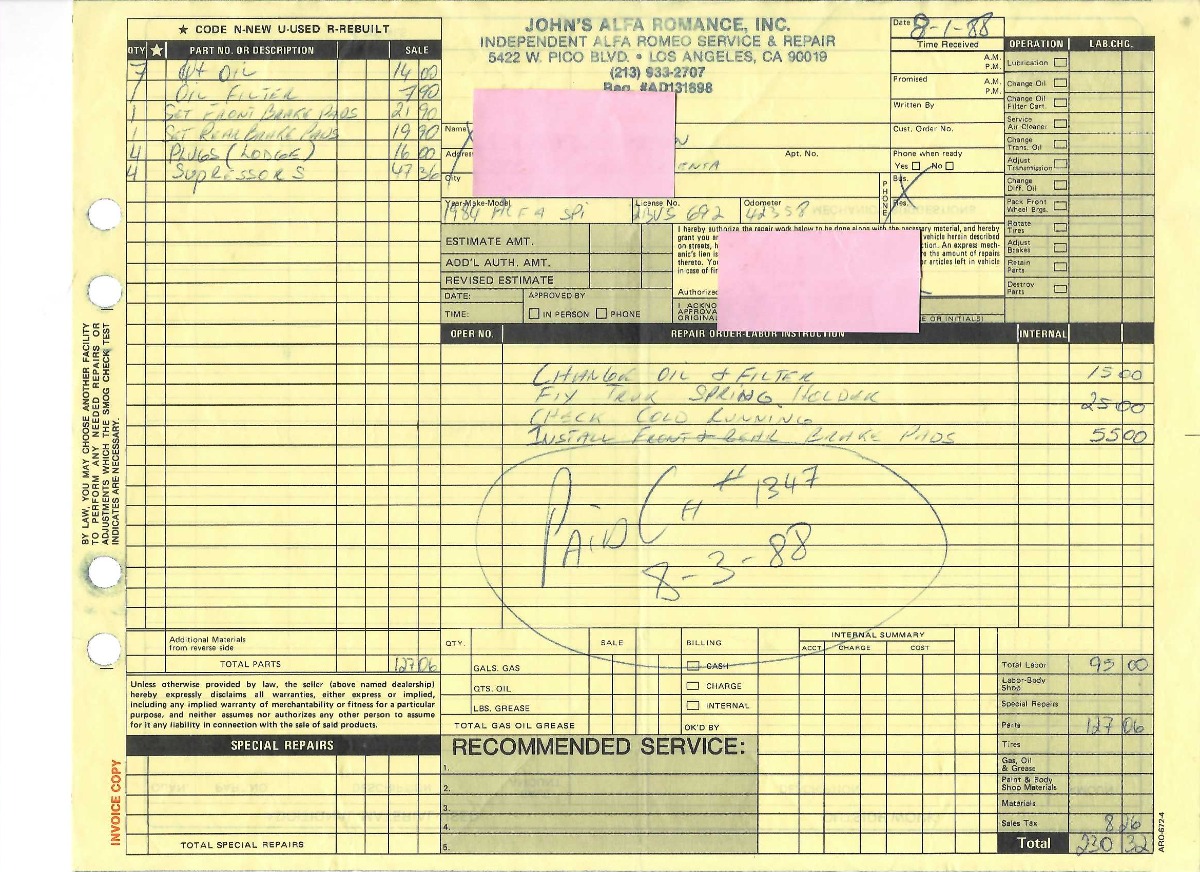 ★ CODE N-NEW U-USED R-REBUILT
QTY ★ PART NO. OR DESCRIPTION SALE
7 qt OIL 14 00
OIL FILTER 7 90
1 SET FRONT BRAKE PADS 21 90
1 SET REAR BRAKE PADS 19 90
4 PLUGS (LODGE) 16 00
4 SUPRESSORS 47 36
JOHN'S ALFA ROMANCE, INC.
INDEPENDENT ALFA ROMEO SERVICE & REPAIR
5422 W. PICO BLVD. • LOS ANGELES, CA 90019
(213) 933-2707
Reg. #AD131698
Date 8-1-88
Time Received
A.M.
P.M.
Promised A.M.
P.M.
Written By
Name
Cust. Order No.
Address Apt. No.
Phone when ready
Yes No
City
PHONE
Bus.
Res.
Year-Make-Model License No. Odometer
1984 ALFA SPI 692 42358
OPERATION LAB.CHG.
Lubrication
Change Oil
Change Oil
Filter Cart.
Service
Air Cleaner
Change
Trans. Oil
Adjust
Transmission
Change
Diff. Oil
Pack Front
Wheel Brgs.
Rotate
Tires
Adjust
Brakes
Retain
Parts
Destroy
Parts
ESTIMATE AMT.
ADD'L AUTH. AMT.
REVISED ESTIMATE
DATE: APPROVED BY
TIME: IN PERSON PHONE
I hereby authorize the repair work below to be done along with the necessary material, and hereby
grant you an vehicle herein described
on streets, h tion. An express mech-
anic's lien is re the amount of repairs
thereto. You r articles left in vehicle
in case of fir
Authorized
I ACKNO
APPROVA
ORIGINA E OR INITIALS)
OPER NO. REPAIR ORDER-LABOR INSTRUCTION INTERNAL
CHANGE OIL & FILTER 15 00
FIX TRUK SPRING HOLDER 25 00
CHECK COLD RUNNING
INSTALL FRONT & REAR BRAKE PADS 55 00
PAID CH #1347
8-3-88
BY LAW, YOU MAY CHOOSE ANOTHER FACILITY
TO PERFORM ANY NEEDED REPAIRS OR
ADJUSTMENTS WHICH THE SMOG CHECK TEST
INDICATES ARE NECESSARY.
Additional Materials
from reverse side
TOTAL PARTS 127 06
Unless otherwise provided by law, the seller (above named dealership)
hereby expressly disclaims all warranties, either express or implied,
including any implied warranty of merchantability or fitness for a particular
purpose, and neither assumes nor authorizes any other person to assume
for it any liability in connection with the sale of said products.
SPECIAL REPAIRS
TOTAL SPECIAL REPAIRS
INVOICE COPY
QTY. SALE BILLING
GALS. GAS CASH
QTS. OIL CHARGE
LBS. GREASE INTERNAL
TOTAL GAS OIL GREASE OK'D BY
INTERNAL SUMMARY
ACCT. CHARGE COST
RECOMMENDED SERVICE:
1.
2.
3.
4.
5.
Total Labor 95 00
Labor-Body
Shop
Special Repairs
Parts 127 06
Tires
Gas, Oil
& Grease
Paint & Body
Shop Materials
Materials
Sales Tax 8 26
Total 230 32
ARO-672-4